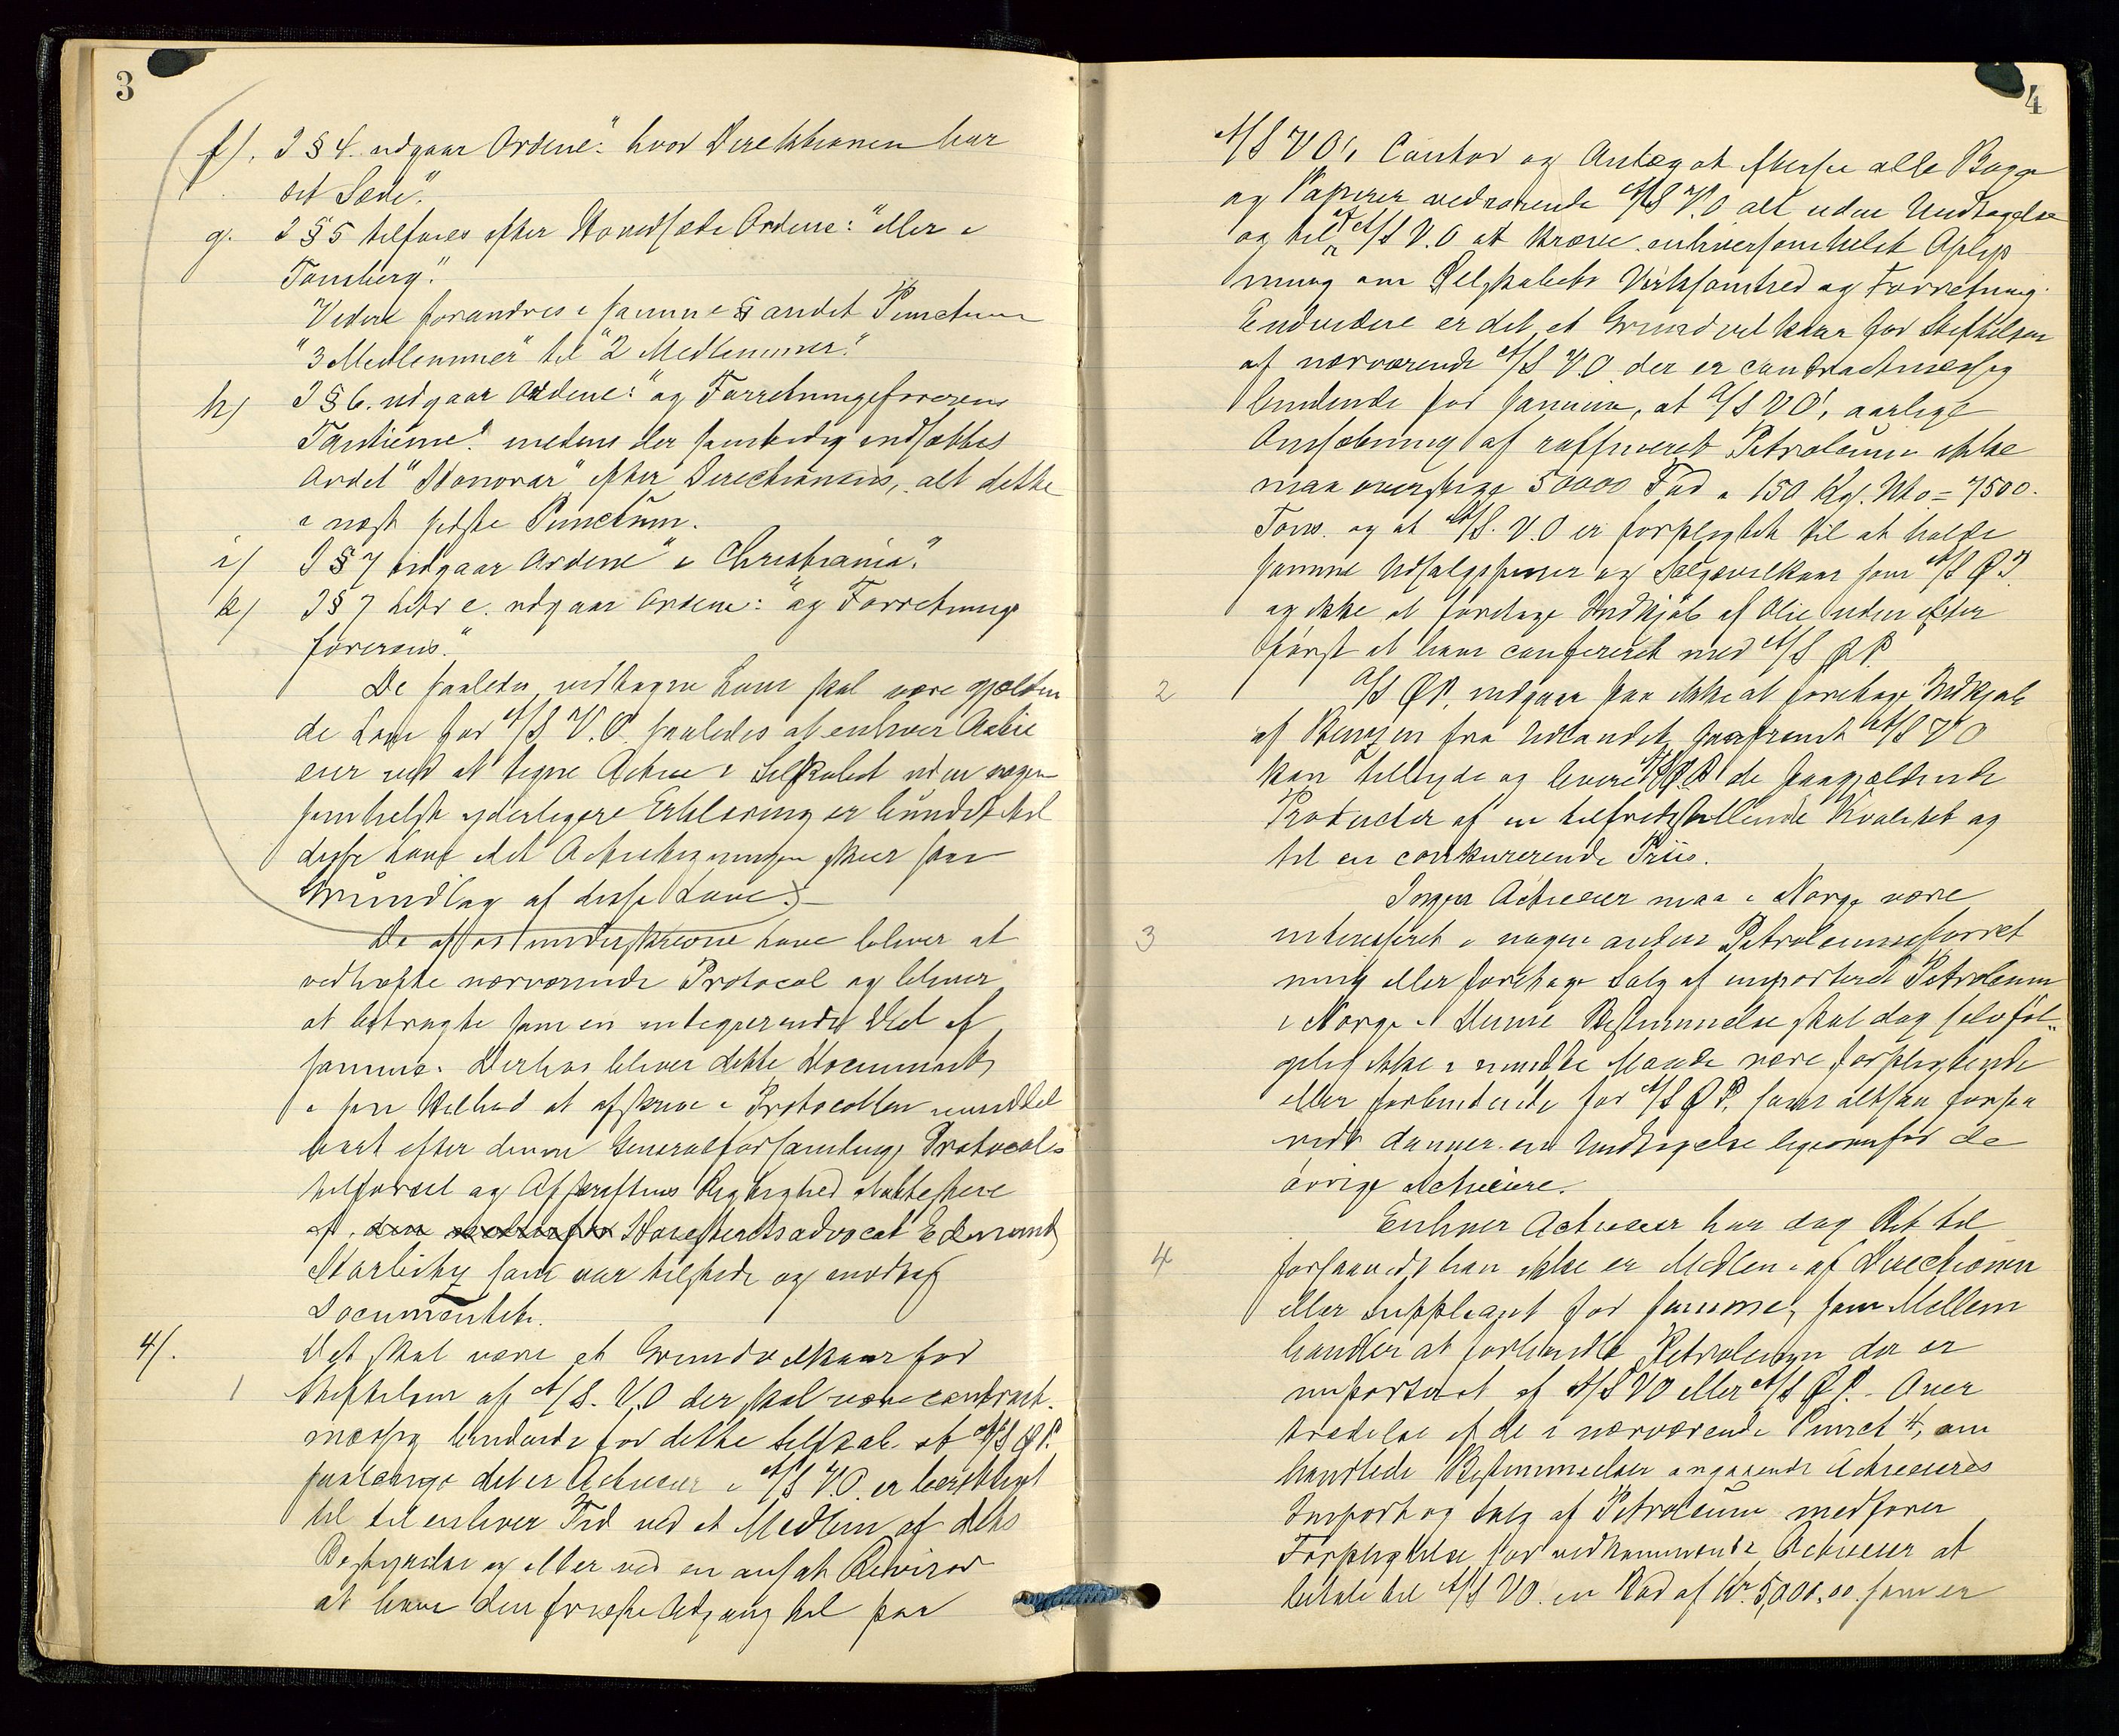 3
f). I § 4. udgaar Ordene: "hvor Direktionen har
sit Sæde".
g. I § 5 tilføies efter Hovedsæde Ordene: "eller i
Tønsberg".
Videre forandres i samme § andet Punctum
"3 Medlemmer" til "2 Medlemmer".
h) I § 6. udgaar Ordene: "og Forretningsførerens
Tantieme" medens der samtidig indsættes
Ordet "Honorar" efter Directionens, alt dette
i næst sidste Punctum.
i) I § 7 udgaar Ordene "i Christiania".
k) I § 7 Litr e. udgaar Ordene: "og Forretnings
førerens."
De saaledes vedtagne Love skal være gjælden
de Love for A/S V.O. saaledes at enhver Actie
eier ved at tegne Actier i Selskabet uden nogen
somhelst yderligere Erklæring er bundet til
disse Love idet Actietegningen skeer paa
Grundlag af disse Love.
De af os underskrevne Love bliver at
vedhæfte nærværende Protocol og bliver
at betragte som en integrerende Deel af
samme. Derhos bliver dette Document
i sin Helhed at afskrive i Protocollen umiddel
bart efter denne Generalforsamlings Protocol
tilførsel og Afskriftens Rigtighed attestere
af Høiesteretsadvocat Edmund
Harbitz som var tilstede og modtog
Documentet.
4). Det skal være et Grundvilkaar for
1 Stiftelsen af A/S. V.O der skal være contract
mæssig bindende for dette Selskab at A/S Ø.P.
saalænge det er Actieeier i A/S V.O. er berettiget
til til enhver Tid ved et Medlem af dets
Bestyrelse og eller ved en ansat Revisor
at have den frieste Adgang til paa
4
A/S VO's Contor og Anlæg at efterse alle Bøger
og Papirer vedrørende A/S V.O alt uden Undtagelse
og til af A/S V.O at kræve enhversomhelst Oplys
ning om Selskabets Virksomhed og Forretning.
Endvidere er det et Grundvilkaar for Stiftelsen
af nærværende A/S V.O. der er contractmæssig
bindende for samme, at A/S VO's aarlige
Omsætning af raffineret Petroleum ikke
maa overstige 50000 Fad a 150 Kg. Nto = 7500.
Tons. og at A/S. V.O er forpligtet til at holde
samme Udsalgspriser og Salgsvilkaar som A/S Ø.P.
og ikke at foretage Indkjøb af Olie uden efter
først at have confereret med A/S Ø P.
2 A/S ØP. indgaar paa ikke at foretage Indkjøb
af Benzin fra Udlandet forsaavidt A/S VO
kan tilbyde og levere A/S ØP. de paagjældende
Producter af en tilfredsstillende Kvalitet og
til en conkurerende Priis.
Ingen Actieeier maa i Norge være
3 interesseret i nogen anden Petroleumsforret
ning eller foretage Salg af importeret Petroleum
i Norge. Denne Bestemmelse skal dog selvføl„
gelig ikke i mindste Maade være forpligtende
eller forbindende for A/S Ø P. som altsaa forsaa
vidt danner en Undtagelse ligeoverfor de
øvrige Actieeiere.
Enhver Actieeier har dog Ret til
4 forsaavidt han ikke er Medlem af Directionen
eller Suppleant for samme, som Mellem
handler at forhandle Petroleum der er
importeret af A/S VO eller A/S Ø P. Over
trædelse af de i nærværende Punct 4, om
handlede Bestemmelser angaaende Actieeieres
Import og Salg af Petroleum medfører
Forpligtelse for vedkommende Actieeier at
betale til A/S VO. en Bod af Kr. 5,000.00 som er